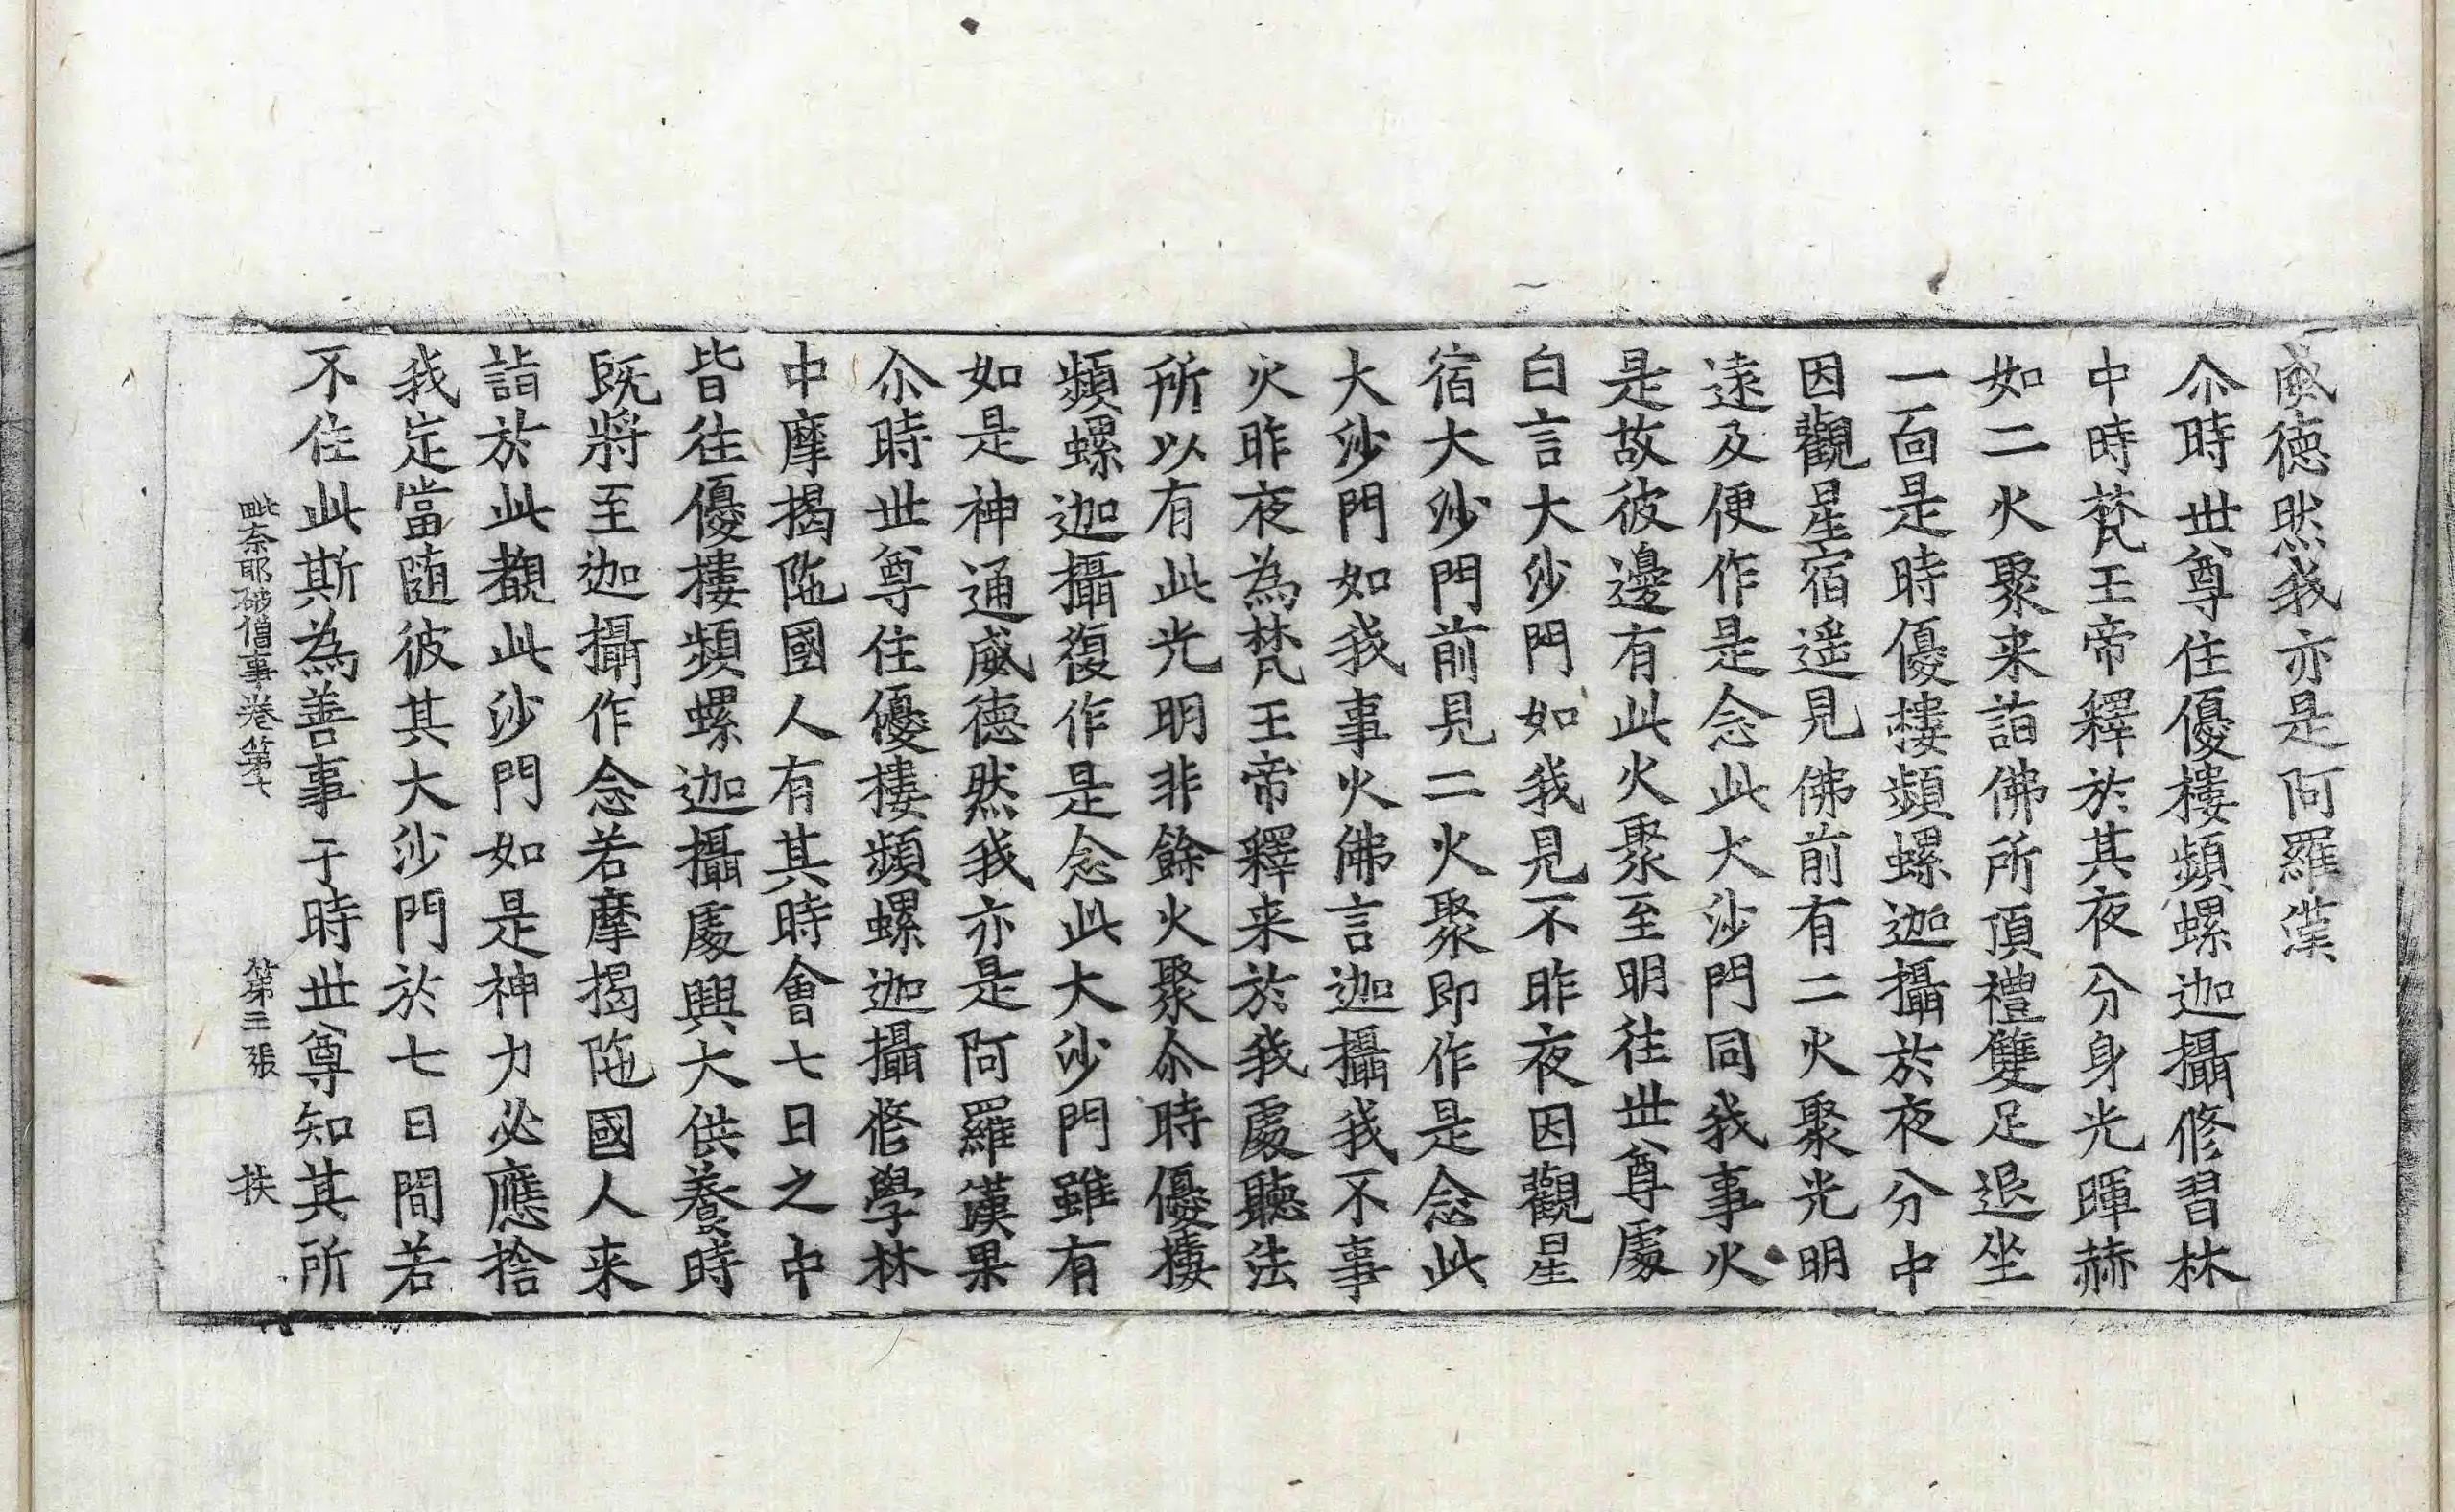 威徳然我亦是阿羅漢
尒時世尊住優樓頻螺迦攝修習林
中時梵王帝釋於其夜分身光暉赫
如二火聚来詣佛所頂禮雙足退坐
一面是時優樓頻螺迦攝於夜分中
因觀星宿遥見佛前有二火聚光明
遠及便作是念此大沙門同我事火
是故彼邊有此火聚至明往世尊處
白言大沙門如我見不昨夜因觀星
宿大沙門前見二火聚即作是念此
大沙門如我事火佛言迦攝我不事
火昨夜為梵王帝釋来於我處聽法
所以有此光明非餘火聚尒時優樓
頻螺迦攝復作是念此大沙門雖有
如是神通威徳然我亦是阿羅漢果
尒時世尊住優樓頻螺迦攝修學林
中摩揭陁國人有其時會七日之中
皆往優樓頻螺迦攝處興大供養時
既將至迦攝作念若摩揭陁國人来
詣於此覩此沙門如是神力必應捨
我定當随彼其大沙門於七日間若
不住此斯為善事于時世尊知其所
毗奈耶破僧事卷第七 第三張 扶